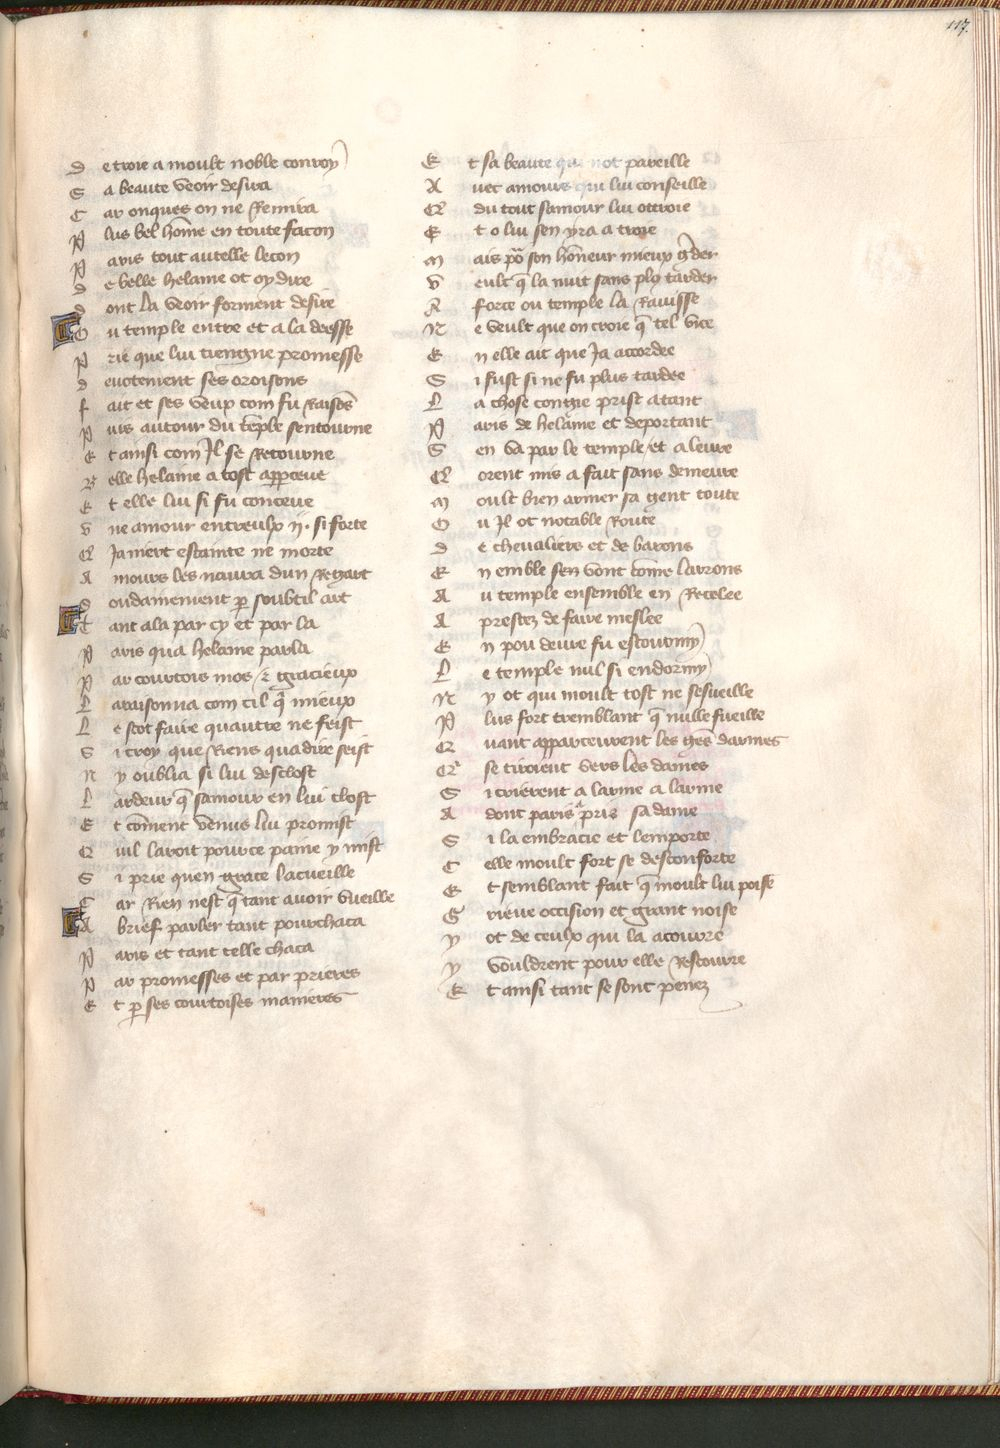 117
De troie a moult noble conroy
Sa beaute veoir desira
Car onques on ne Remira
Plus bel home en toute facon
Paris tout autelle lecon
De belle helaine ot oy dire
Dont La veoir forment desire
Ou temple entre et a la deesse
Prie que lui tiengne promesse
Devotement ses oroisons
Fait et ses veux com fu Raisons
Puis autour du temple sentourne
Et ainsi com Jl se Retourne
Belle helaine a tost apperceue
Et elle lui si fu conceue
Vne amour entreulx ij. si forte
Ja niert estainte ne morte
Amours les naura dun Regart
Soudainement p soubtil art
Tant ala par cy et par la
Paris qua helaine parla
Par courtois mos & gracieux
Laraisonna com cil q mieux
Le scot faire quautre ne feist
Si croy que Riens qua dire seist
Ny oublia si lui desclost
Lardeur q samour en Lui clost
Et coment venus Lui promist
Quil lavoit pource paine y mist
Si prie quen grace lacueille
Car Rien nest q tant avoir vueille
A brief parler tant pourchaca
Paris et tant telle chaca
Par promesses et par prieres
Et p ses courtoises manieres
Et sa beaute qui not pareille
Avec amours qui lui conseille
du tout samour lui ottroie
Et o lui sen yra a troie
Mais po son honneur mieux gder
Veult q la nuit sans plus tarder
A force ou temple la Rauisse
Ne veult que on croie q tel vice
En elle ait que Ja accordee
Si fust si ne fu plus tardee
La chose congie prist atant
Paris de helaine et deportant
Sen va par le temple et a leure
orent mis a fait sans demeure
Moult bien armer sa gent toute
Ou Jl ot notable Route
De chevaliers et de barons
En emble sen vont come Larrons
Au temple ensemble en Recelee
Aprestez de faire meslee
En pou deure fu estourmy
Le temple nul si endormy
Ny ot qui moult tost ne sesueille
Plus fort tremblant q nulle fueille
Quant apparceurent les gens darmes
se tiroient vers Les dames
Si crierent a larme a larme
Adont paris a pris sa dame
Si la embracie et lemporte
Celle moult fort se desconforte
Et semblant fait q moult lui poise
Grieue occision et grant noise
Y ot de ceulx qui la acourre
Y vouldrent pour elle Rescourre
Et ainsi tant se sont penez